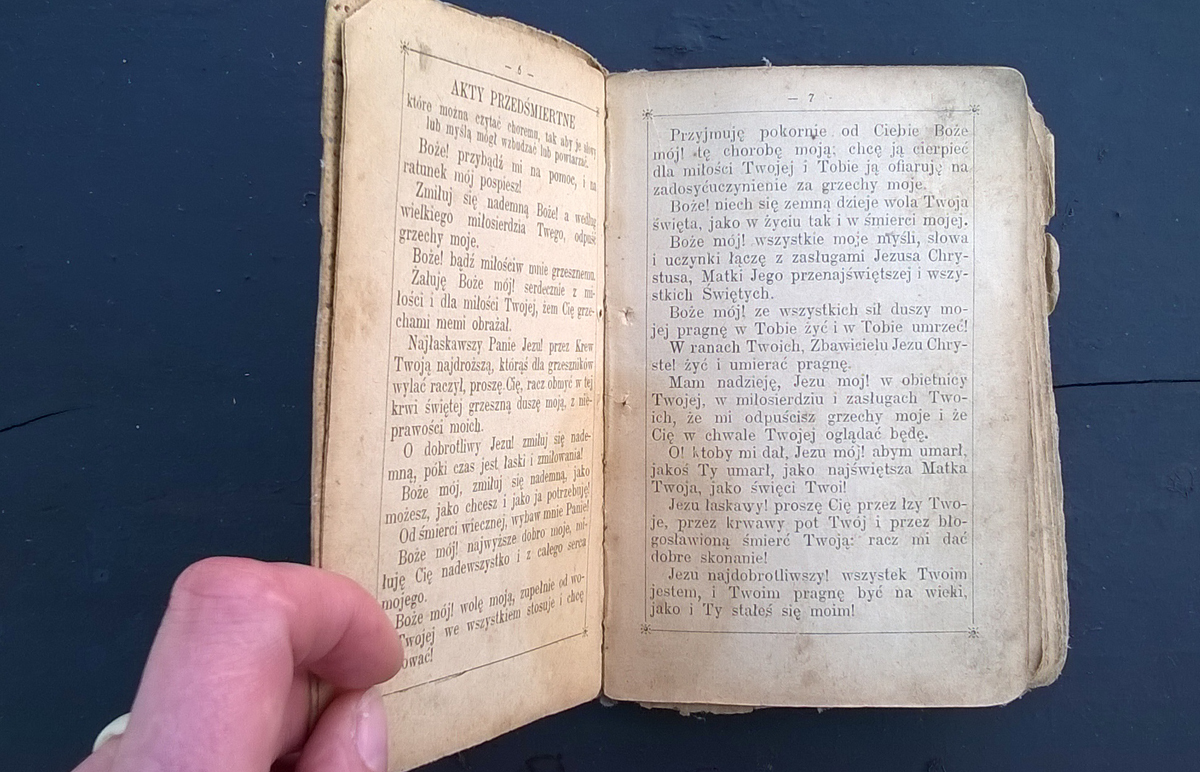 — 6 —
AKTY PRZEDŚMIERTNE
które można czytać choremu, tak aby je słowy
lub myślą mógł wzbudzać lub powtarzać.
Boże! przybądź mi na pomoc, i na
ratunek mój pospiesz!
Zmiłuj się nademną Boże! a według
wielkiego miłosierdzia Twego, odpuść
grzechy moje.
Boże! bądź miłościw mnie grzesznemu.
Żałuję Boże mój! serdecznie z mi-
łości i dla miłości Twojej, żem Cię grze-
chami memi obrażał.
Najłaskawszy Panie Jezu! przez Krew
Twoją najdroższą, którąś dla grzeszników
wylać raczył, proszę Cię, racz obmyć w tej
krwi świętej grzeszną duszę moją, z nie-
prawości moich.
O dobrotliwy Jezu! zmiłuj się nade-
mną, póki czas jest łaski i zmiłowania!
Boże mój, zmiłuj się nademną, jako
możesz, jako chcesz i jako ja potrzebuję!
Od śmierci wiecznej, wybaw mnie Panie!
Boże mój! najwyższe dobro moje, mi-
łuję Cię nadewszystko i z całego serca
mojego.
Boże mój! wolę moją, zupełnie od wo-
Twojej we wszystkiem stosuję i chcę
ować!
— 7 -
Przyjmuję pokornie od Ciebie Boże
mój! tę chorobę moją; chcę ją cierpieć
dla miłości Twojej i Tobie ją ofiaruję na
zadosyćuczynienie za grzechy moje.
Boże! niech się zemną dzieje wola Twoja
święta, jako w życiu tak i w śmierci mojej.
Boże mój! wszystkie moje myśli, słowa
i uczynki łączę z zasługami Jezusa Chry-
stusa, Matki Jego przenajświętszej i wszy-
stkich Świętych.
Boże mój! ze wszystkich sił duszy mo-
jej pragnę w Tobie żyć i w Tobie umrzeć!
W ranach Twoich, Zbawicielu Jezu Chry-
ste! żyć i umierać pragnę.
Mam nadzieję, Jezu moj! w obietnicy
Twojej, w miłosierdziu i zasługach Two-
ich, że mi odpuścisz grzechy moje i że
Cię w chwale Twojej oglądać będę.
O! ktoby mi dał, Jezu mój! abym umarł,
jakoś Ty umarł, jako najświętsza Matka
Twoja, jako święci Twoi!
Jezu łaskawy! proszę Cię przez łzy Two-
je, przez krwawy pot Twój i przez bło-
gosławioną śmierć Twoją: racz mi dać
dobre skonanie!
Jezu najdobrotliwszy! wszystek Twoim
jestem, i Twoim pragnę być na wieki,
jako i Ty stałeś się moim!